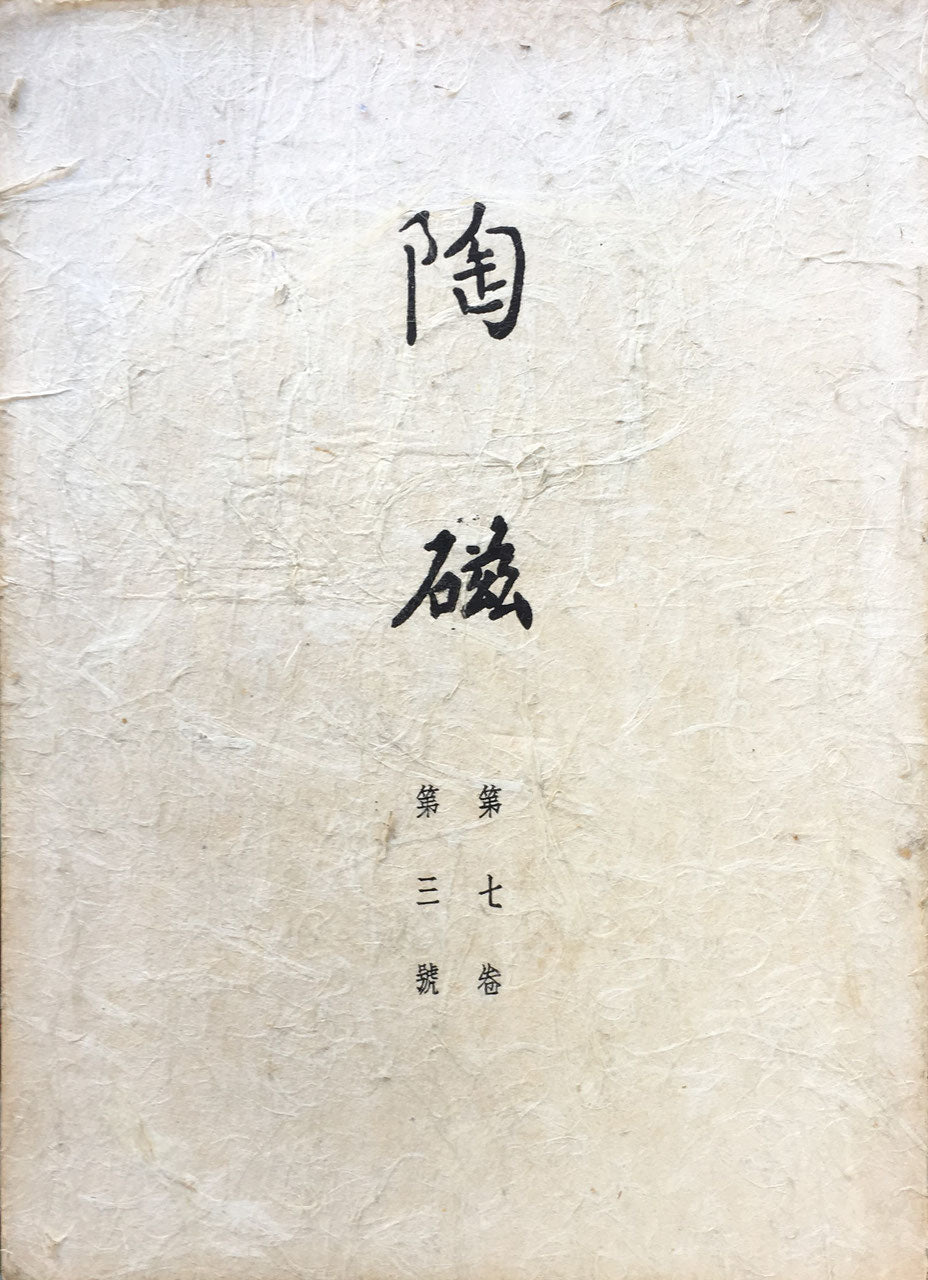 陶磁
第七卷
第三號